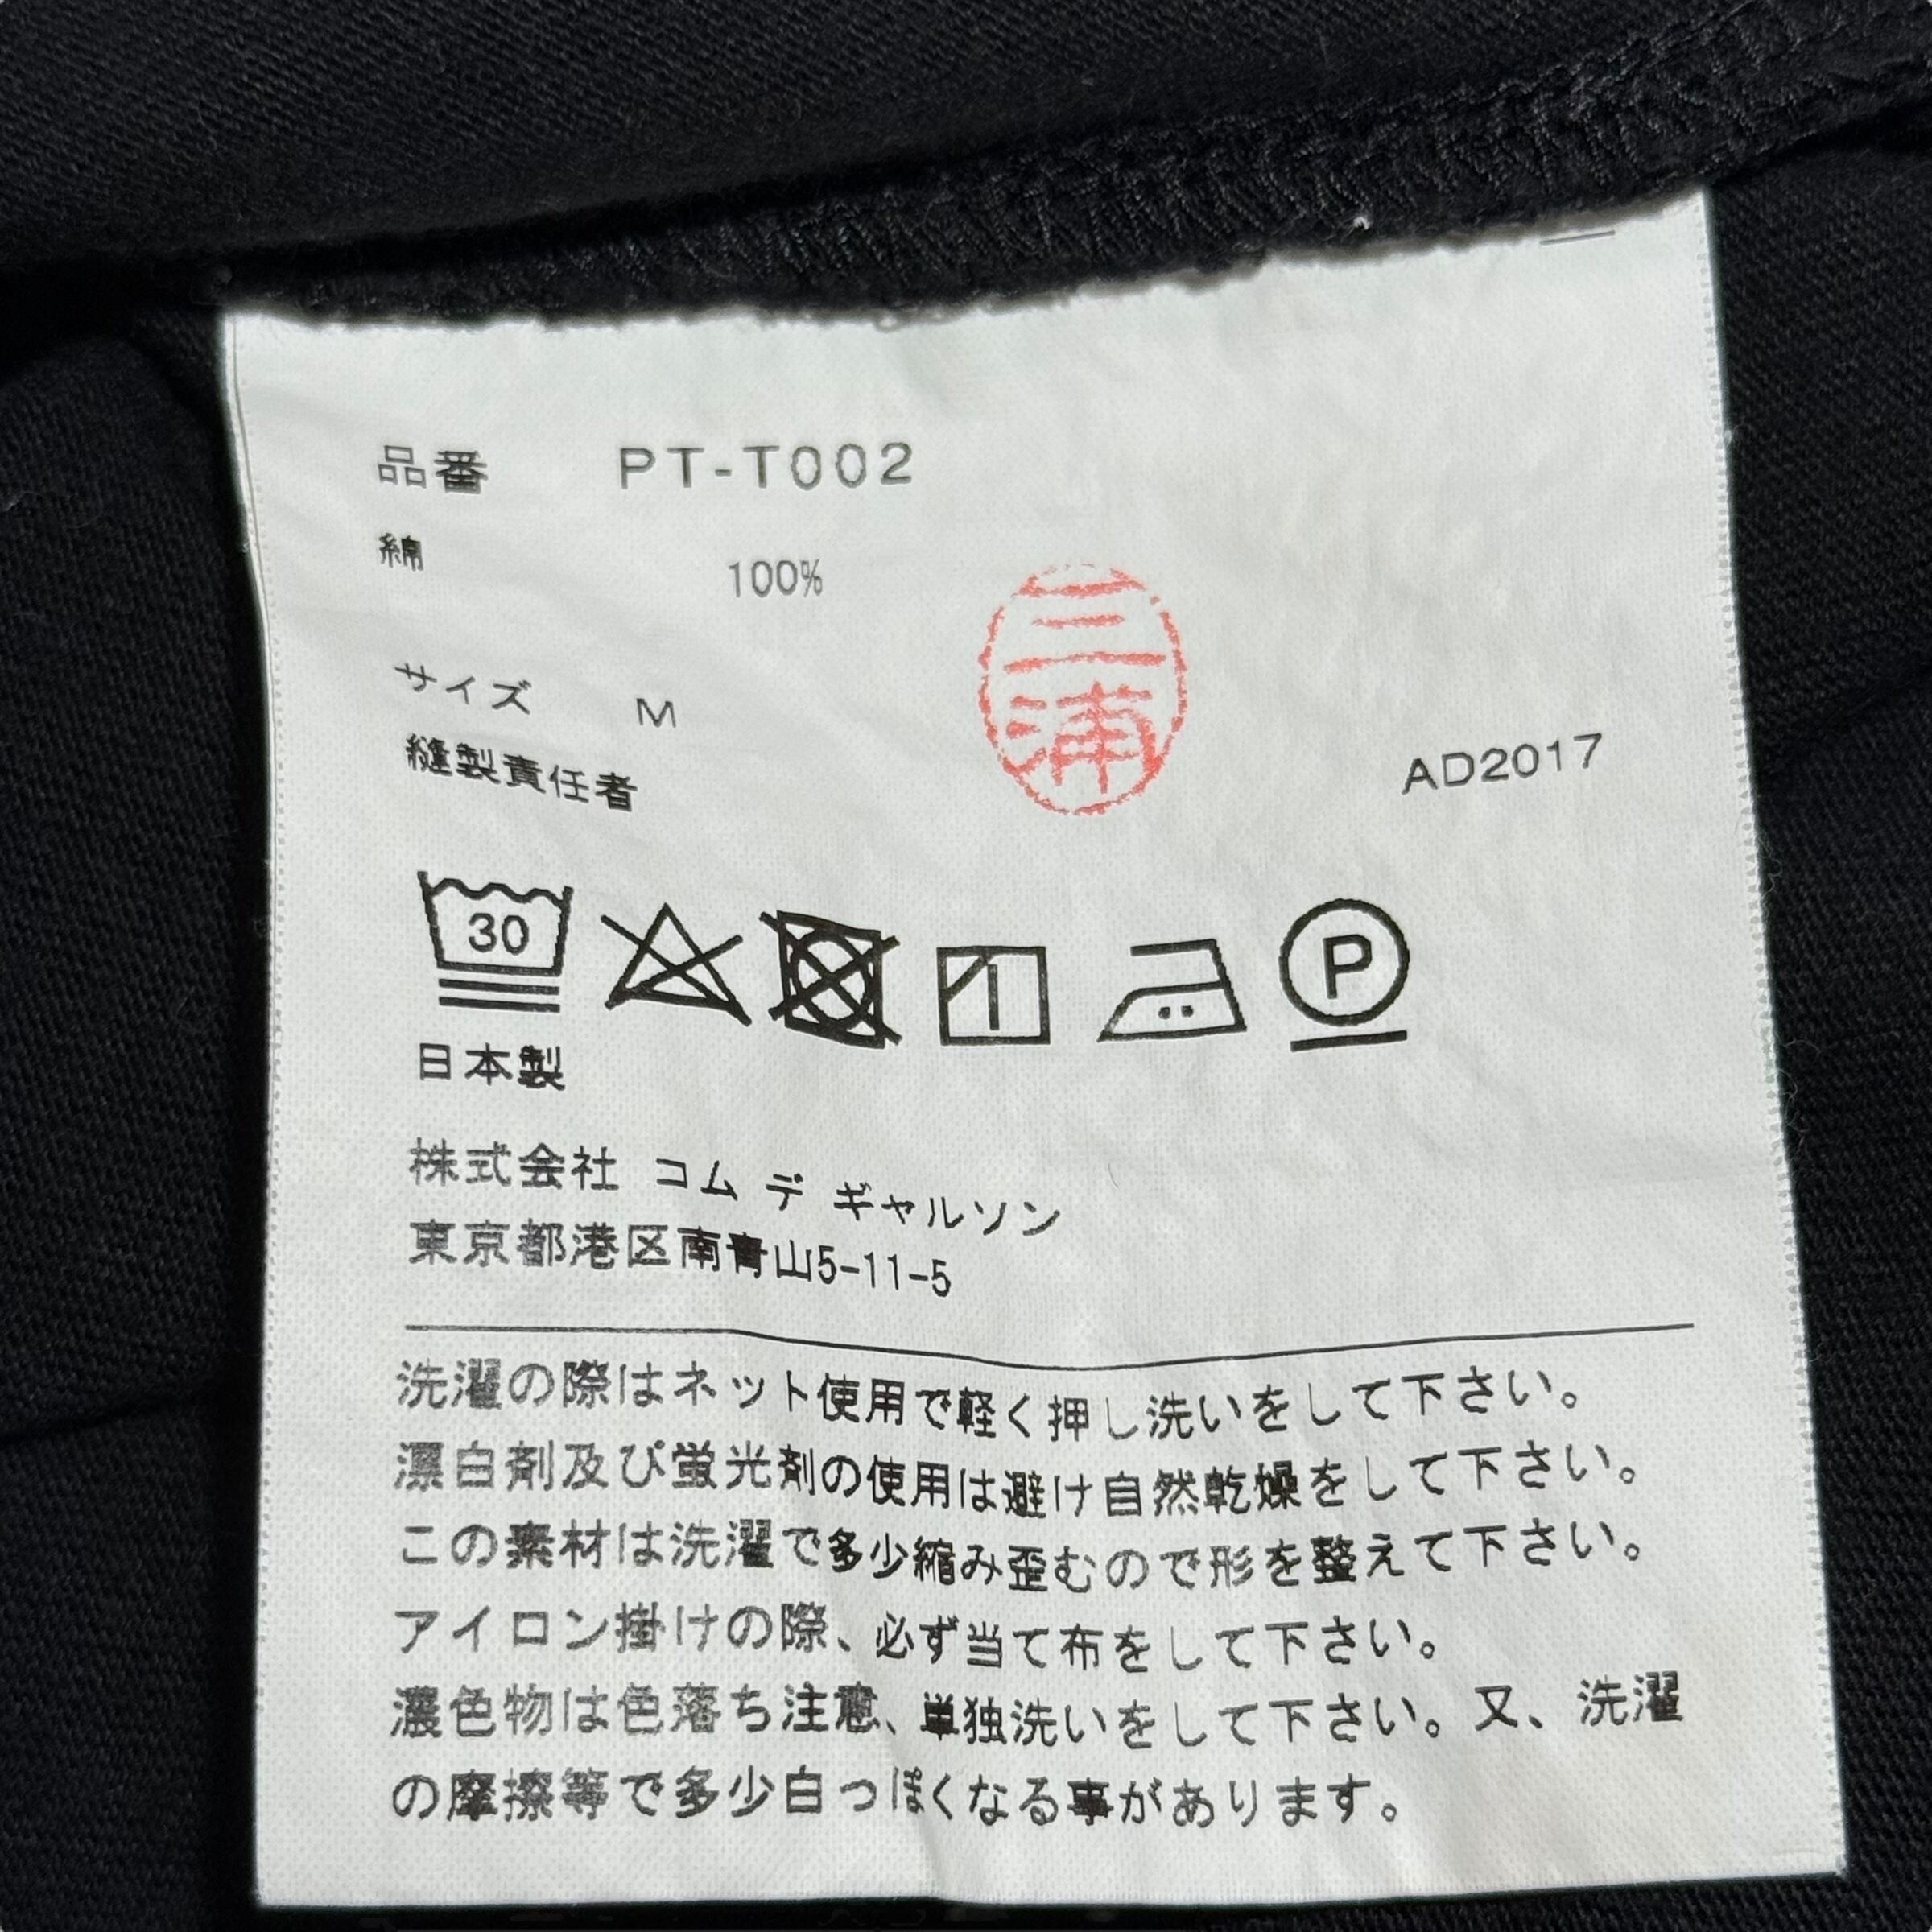 品番 PT-T002
綿 100%
三浦
サイズ M
縫製責任者
AD2017
30
P
日本製
株式会社 コム デ ギャルソン
東京都港区南青山5-11-5
洗濯の際はネット使用で軽く押し洗いをして下さい。
漂白剤及び蛍光剤の使用は避け自然乾燥をして下さい。
この素材は洗濯で多少縮み歪むので形を整えて下さい。
アイロン掛けの際、必ず当て布をして下さい。
濃色物は色落ち注意、単独洗いをして下さい。又、洗濯
の摩擦等で多少白っぽくなる事があります。